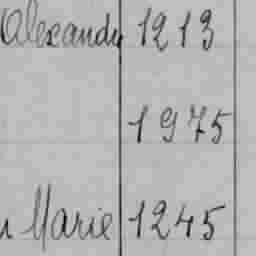 Alexandu 1213
1975
u Marie 1245